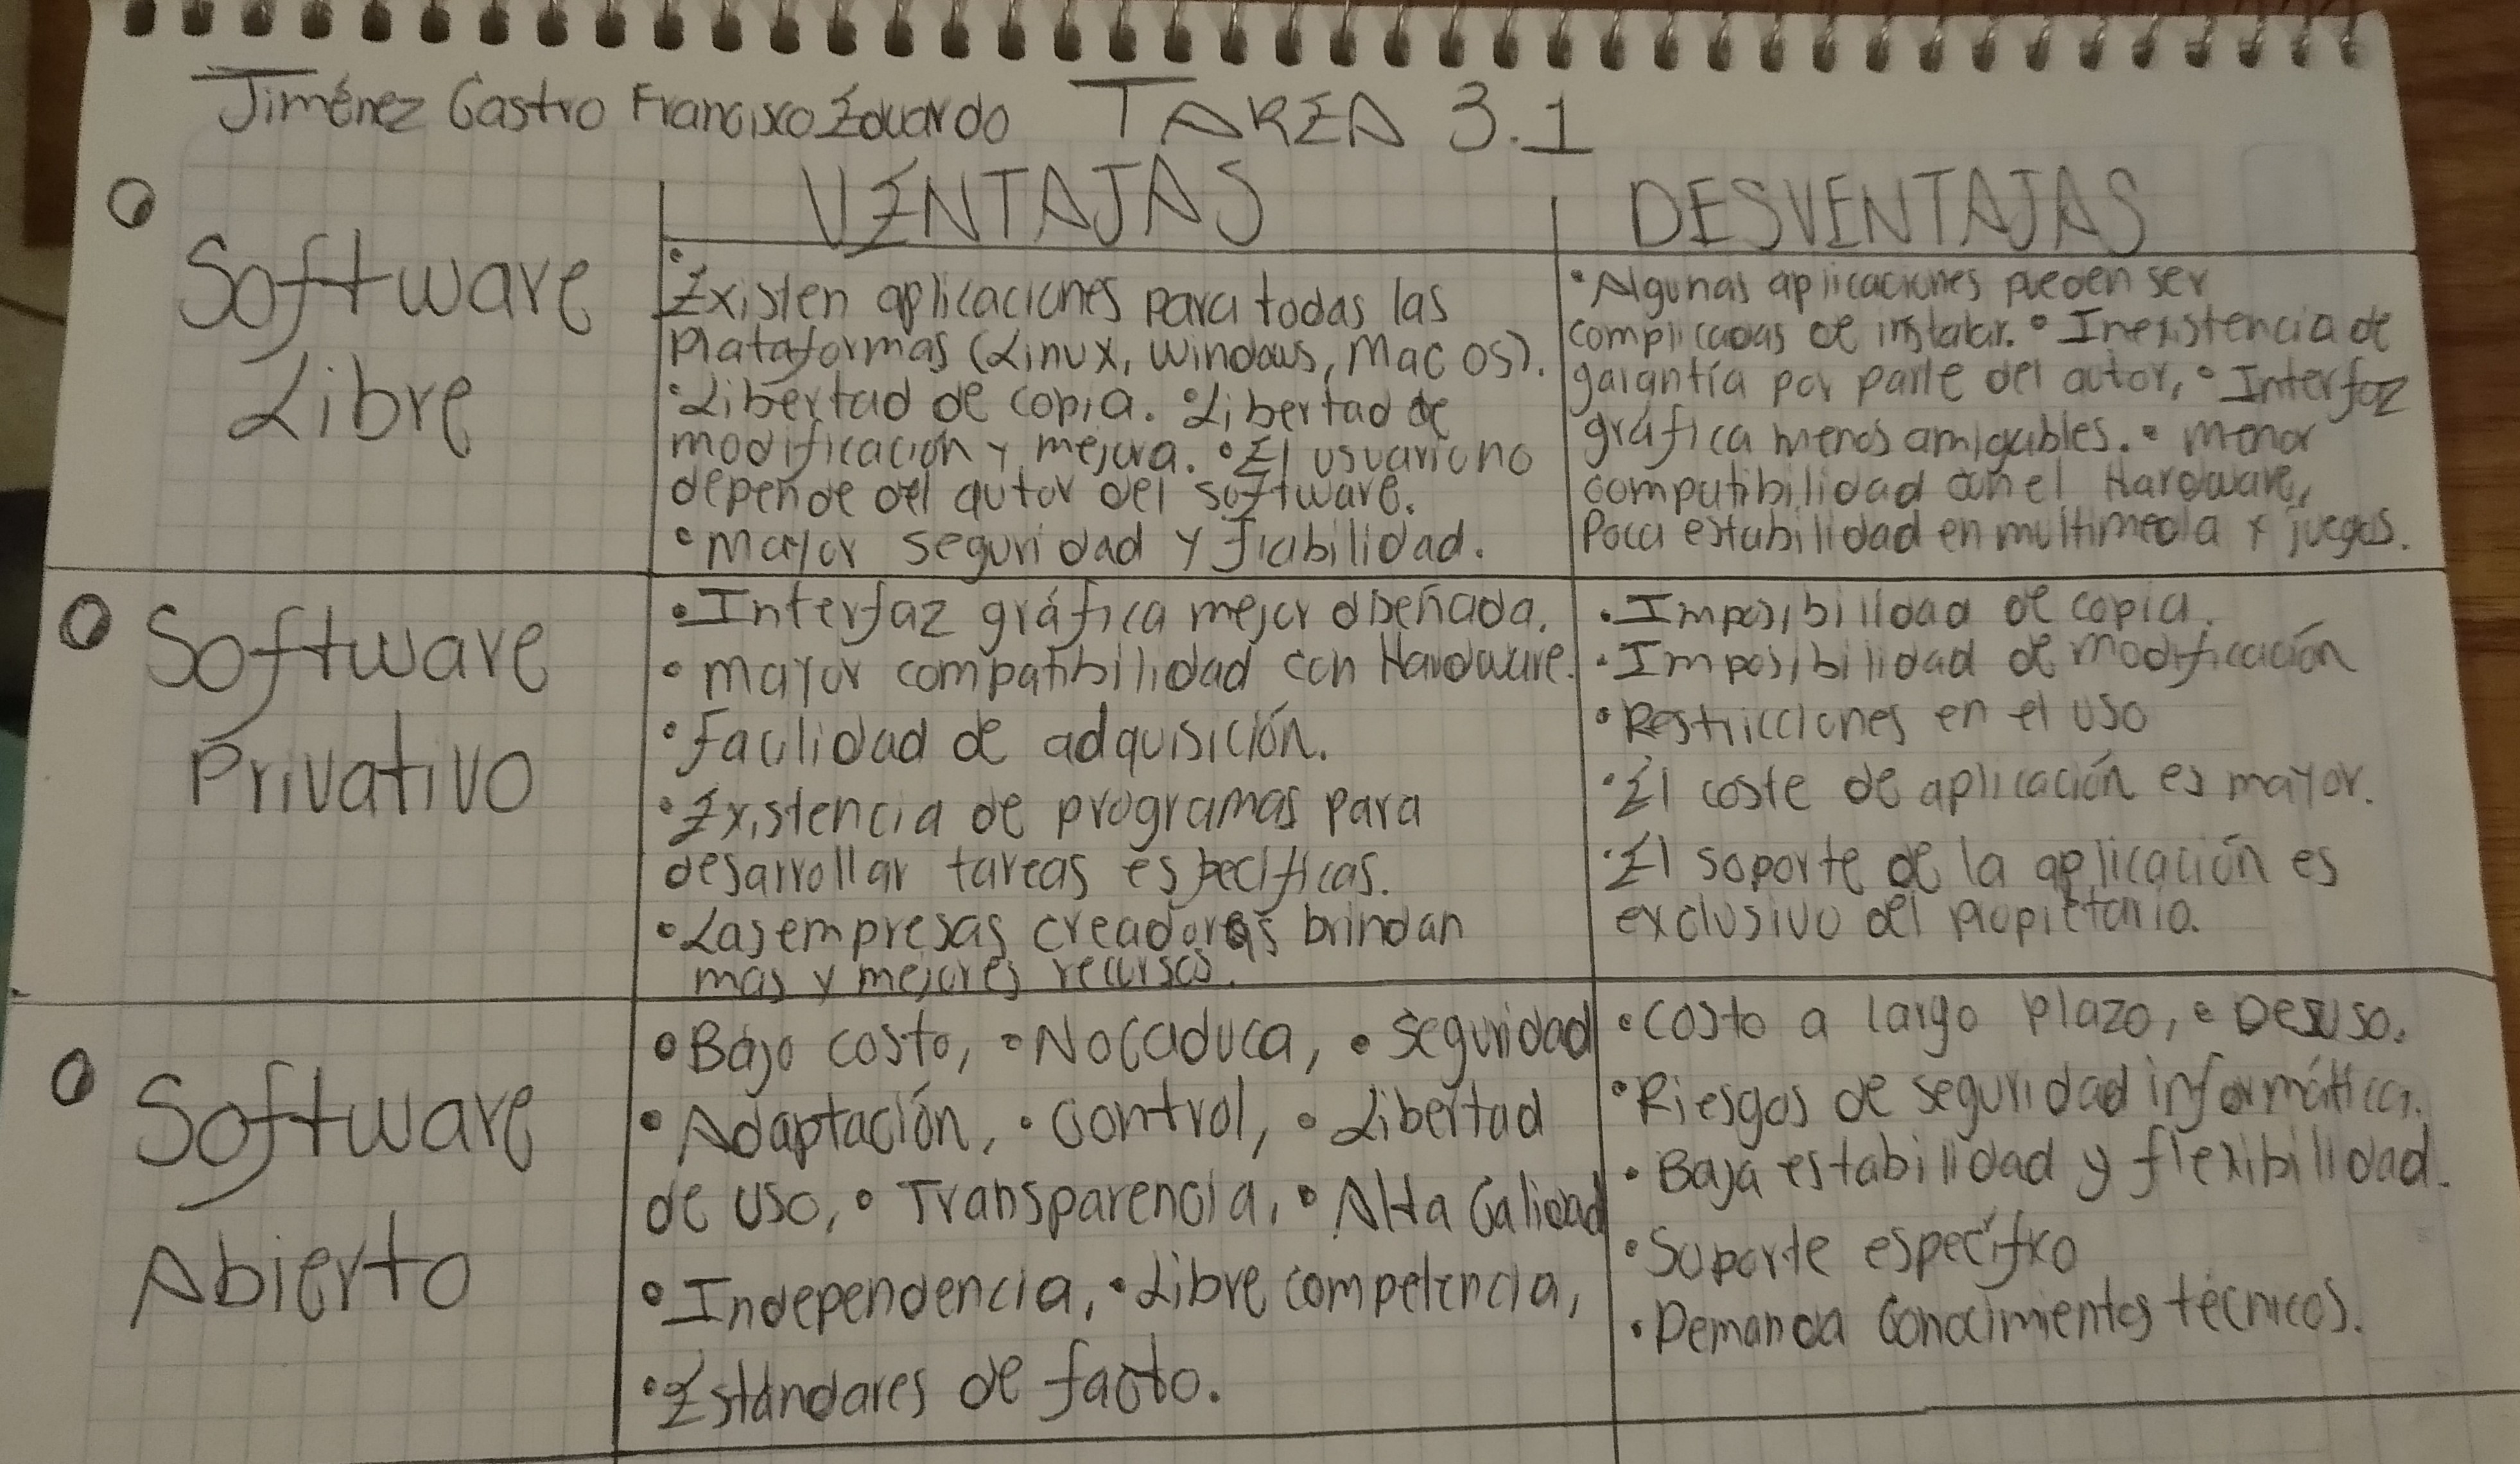 Jiménez Castro Francisco Eduardo TAREA 3.1
VENTAJAS
DESVENTAJAS
Software
Libre
• Existen aplicaciones para todas las
Plataformas (Linux, Windows, Mac OS).
• Libertad de copia. • Libertad de
modificación y mejora. • El usuario no
depende del autor del software.
• Mayor seguridad y fiabilidad.
• Algunas aplicaciones pueden ser
complicadas de instalar. • Inexistencia de
garantía por parte del autor, • Interfaz
gráfica menos amigables. • Menor
compatibilidad con el Hardware,
Poca estabilidad en multimedia y juegos.
Software
Privativo
• Interfaz gráfica mejor diseñada.
• Mayor compatibilidad con Hardware.
• Facilidad de adquisición.
• Existencia de programas para
desarrollar tareas específicas.
• Las empresas creadoras brindan
mas y mejores recursos.
• Imposibilidad de copia.
• Imposibilidad de modificación
• Restricciones en el uso
• El coste de aplicación es mayor.
• El soporte de la aplicación es
exclusivo del propietario.
Software
Abierto
• Bajo costo, • No caduca, • Seguridad
• Adaptación, • Control, • Libertad
de uso, • Transparencia, • Alta Calidad
• Independencia, • Libre competencia,
• Estándares de facto.
• Costo a largo plazo, • Desuso.
• Riesgos de seguridad informática.
• Baja estabilidad y flexibilidad.
• Soporte específico
• Demanda Conocimientos técnicos.